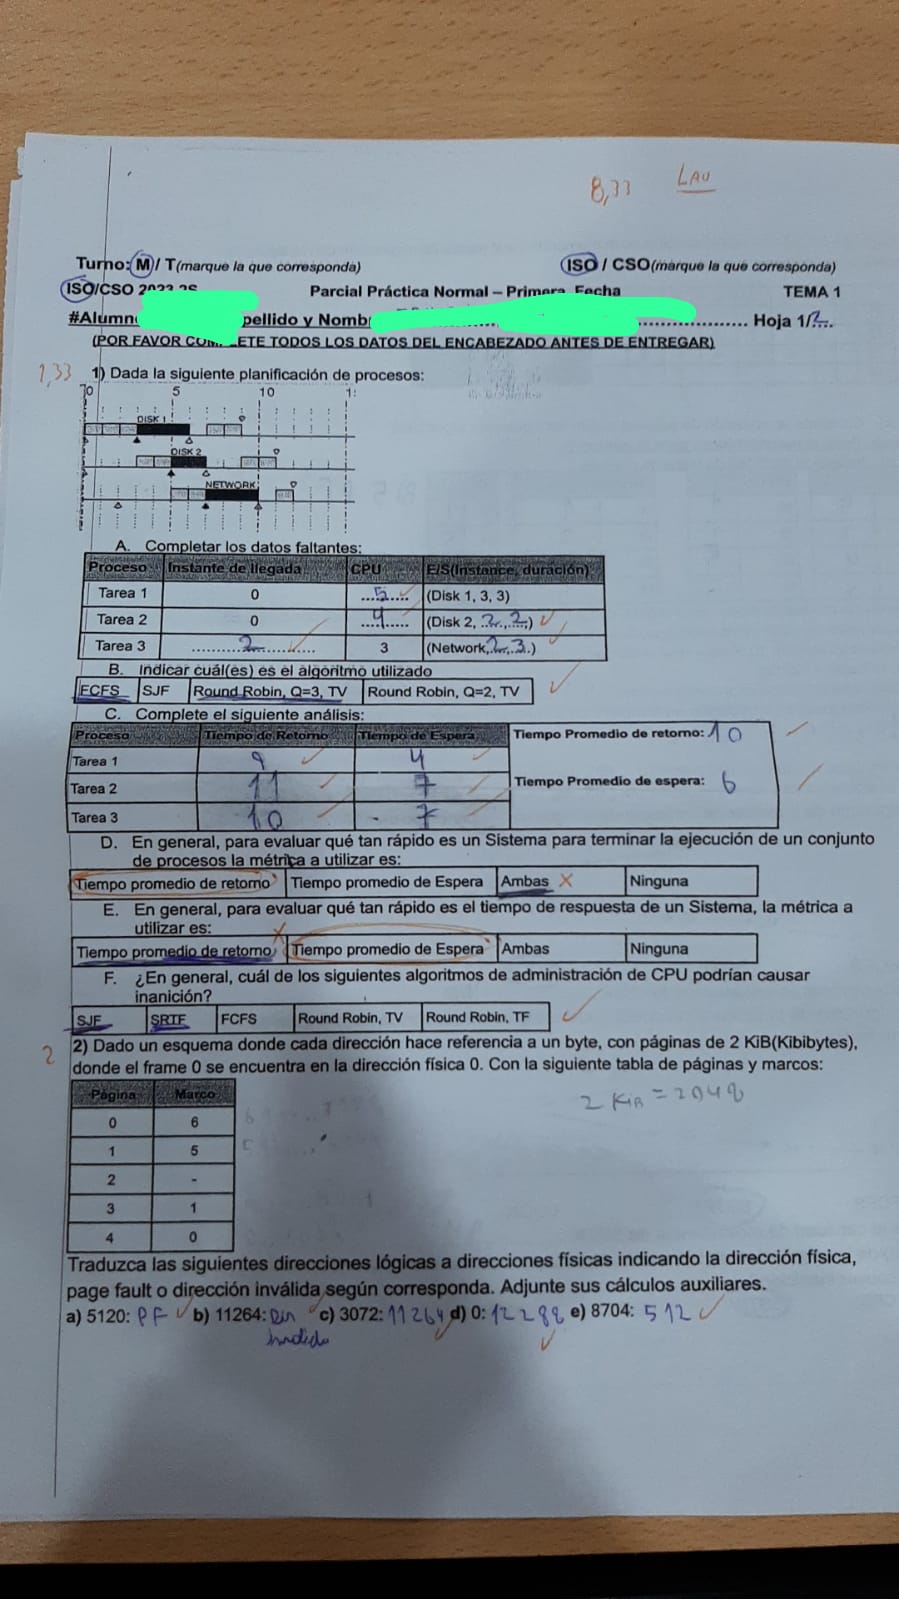 8,33 LAU
Turno: M / T(marque la que corresponda) ISO / CSO(marque la que corresponda)
ISO/CSO 2023 2S Parcial Práctica Normal – Primera Fecha TEMA 1
#Alumn pellido y Nomb Hoja 1/2
(POR FAVOR COMPLETE TODOS LOS DATOS DEL ENCABEZADO ANTES DE ENTREGAR)
1,33 1) Dada la siguiente planificación de procesos:
0 5 10
DISK 1
DISK 2
NETWORK
A. Completar los datos faltantes:
Proceso Instante de llegada CPU E/S(Instance, duración)
Tarea 1 0 ....5.... (Disk 1, 3, 3)
Tarea 2 0 ....4.... (Disk 2, 2, 2)
Tarea 3 2 3 (Network, 2, 3)
B. Indicar cuál(es) es el algoritmo utilizado
FCFS SJF Round Robin, Q=3, TV Round Robin, Q=2, TV
C. Complete el siguiente análisis:
Proceso Tiempo de Retorno Tiempo de Espera Tiempo Promedio de retorno: 10
Tarea 1 9 4
Tarea 2 11 7 Tiempo Promedio de espera: 6
Tarea 3 10 7
D. En general, para evaluar qué tan rápido es un Sistema para terminar la ejecución de un conjunto
de procesos la métrica a utilizar es:
Tiempo promedio de retorno Tiempo promedio de Espera Ambas X Ninguna
E. En general, para evaluar qué tan rápido es el tiempo de respuesta de un Sistema, la métrica a
utilizar es: X
Tiempo promedio de retorno Tiempo promedio de Espera Ambas Ninguna
F. ¿En general, cuál de los siguientes algoritmos de administración de CPU podrían causar
inanición?
SJF SRTF FCFS Round Robin, TV Round Robin, TF
2 2) Dado un esquema donde cada dirección hace referencia a un byte, con páginas de 2 KiB(Kibibytes),
donde el frame 0 se encuentra en la dirección física 0. Con la siguiente tabla de páginas y marcos:
Página Marco 2 KiB = 2048
0 6
1 5
2 -
3 1
4 0
Traduzca las siguientes direcciones lógicas a direcciones físicas indicando la dirección física,
page fault o dirección inválida según corresponda. Adjunte sus cálculos auxiliares.
a) 5120: PF b) 11264: Dir c) 3072: 11264 d) 0: 12288 e) 8704: 512